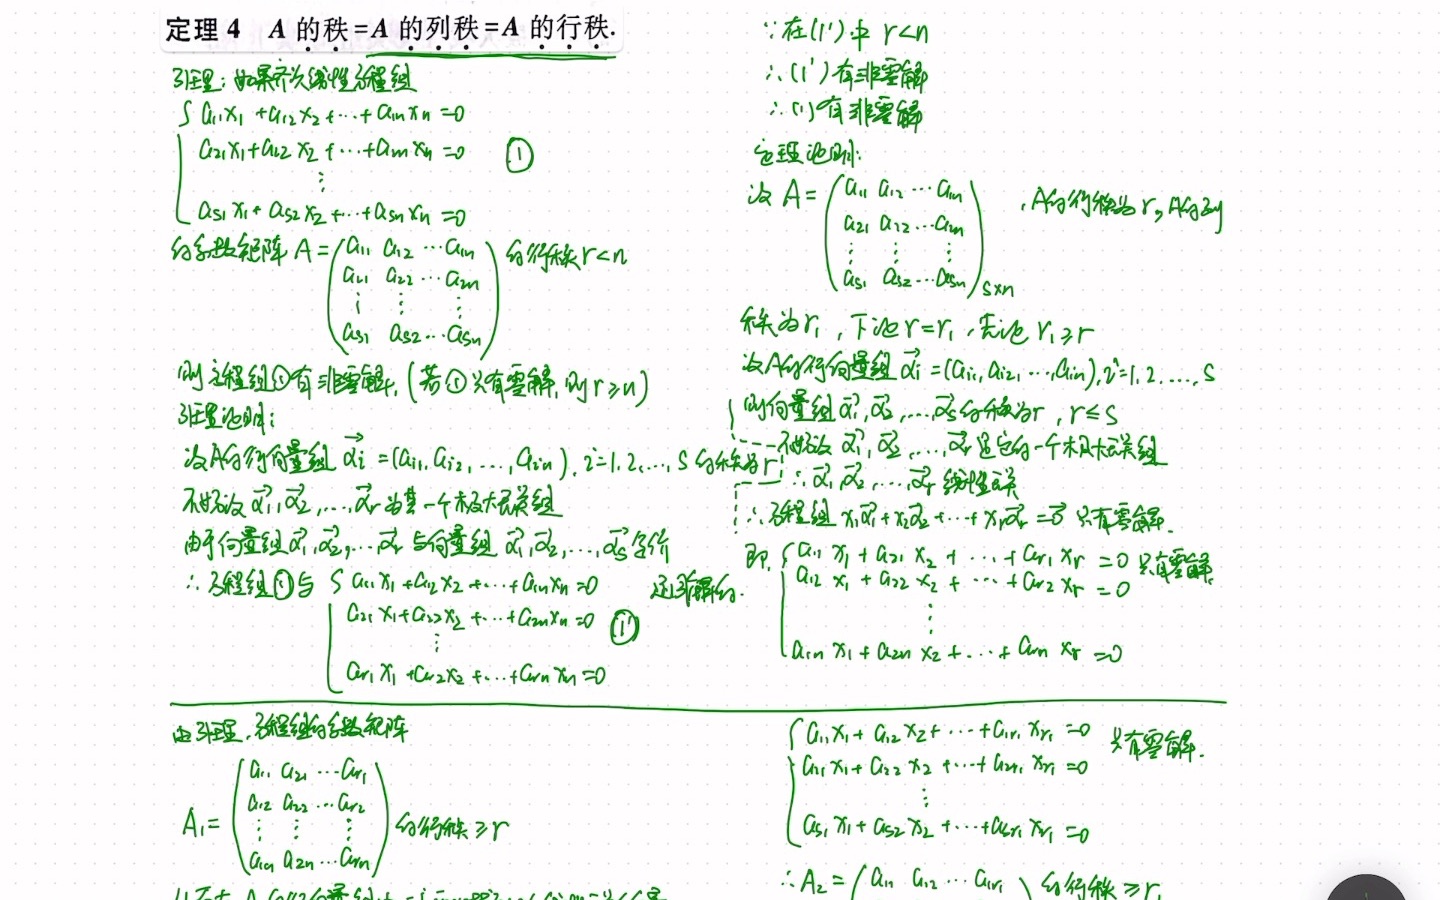 定理 4 A 的秩=A 的列秩=A 的行秩.
引理：如果齐次线性方程组
a₁₁x₁+a₁₂x₂+⋯+a₁ₙxₙ=0
a₂₁x₁+a₂₂x₂+⋯+a₂ₙxₙ=0 ①
⋮
aₛ₁x₁+aₛ₂x₂+⋯+aₛₙxₙ=0
的系数矩阵 A=
a₁₁ a₁₂ ⋯ a₁ₙ
a₂₁ a₂₂ ⋯ a₂ₙ
⋮ ⋮ ⋮
aₛ₁ aₛ₂ ⋯ aₛₙ
的行秩 r<n
则方程组①有非零解,(若①只有零解,则r≥n)
引理证明:
设A的行向量组 α⃗ᵢ=(aᵢ₁,aᵢ₂,…,aᵢₙ), i=1,2,…,s 的秩为r
不妨设 α⃗₁,α⃗₂,…,α⃗ᵣ 为其一个极大无关组
由于向量组α⃗₁,α⃗₂,…,α⃗ᵣ 与向量组 α⃗₁,α⃗₂,…,α⃗ₛ 等价
∴方程组①与 a₁₁x₁+a₁₂x₂+⋯+a₁ₙxₙ=0 是同解的.
a₂₁x₁+a₂₂x₂+⋯+a₂ₙxₙ=0 ①'
⋮
aᵣ₁x₁+aᵣ₂x₂+⋯+aᵣₙxₙ=0
∵在(1')中 r<n
∴(1')有非零解
∴(1)有非零解
定理证明:
设 A=
a₁₁ a₁₂ ⋯ a₁ₙ
a₂₁ a₂₂ ⋯ a₂ₙ
⋮ ⋮ ⋮
aₛ₁ aₛ₂ ⋯ aₛₙ
s×n
,A的行秩为r,A的列
秩为r₁,下证r=r₁,先证 r₁≥r
设A的行向量组 α⃗ᵢ=(aᵢ₁,aᵢ₂,…,aᵢₙ), i=1,2,…,s
则向量组α⃗₁,α⃗₂,…,α⃗ₛ的秩为r, r≤s
不妨设 α⃗₁,α⃗₂,…,α⃗ᵣ是它的一个极大无关组
∴α⃗₁,α⃗₂,…,α⃗ᵣ 线性无关
∴方程组 x₁α⃗₁+x₂α⃗₂+⋯+xᵣα⃗ᵣ=0⃗ 只有零解.
即, a₁₁x₁+a₂₁x₂+⋯+aᵣ₁xᵣ=0 只有零解.
a₁₂x₁+a₂₂x₂+⋯+aᵣ₂xᵣ=0
⋮
a₁ₙx₁+a₂ₙx₂+⋯+aᵣₙxᵣ=0
由引理,方程组的系数矩阵
A₁=
a₁₁ a₂₁ ⋯ aᵣ₁
a₁₂ a₂₂ ⋯ aᵣ₂
⋮ ⋮ ⋮
a₁ₙ a₂ₙ ⋯ aᵣₙ
的行秩≥r
a₁₁x₁+a₁₂x₂+⋯+a₁ᵣ₁xᵣ₁=0 只有零解.
a₂₁x₁+a₂₂x₂+⋯+a₂ᵣ₁xᵣ₁=0
⋮
aₛ₁x₁+aₛ₂x₂+⋯+aₛᵣ₁xᵣ₁=0
∴A₂= a₁₁ a₁₂ ⋯ a₁ᵣ₁ 的行秩≥r₁